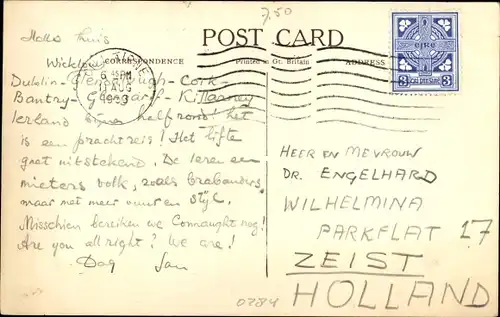 7,50
Hallo thuis
POST CARD
CORRESPONDENCE
Printed in Gt. Britain
ADDRESS
éire
3 3
6 15PM
11 AUG
1953
Wicklow
Dublin - Glendalough - Cork -
Bantry - Glengariff - Killarney
Ierland bijna half rond! het
is een pracht reis! Het liften
gaat uitstekend. De Ieren een
mieters volk, zoals brabanders
maar met meer vuur en stijl.
Misschien bereiken we Connaught nog!
Are you all right? We are!
Dag Jan
HEER EN MEVROUW
DR. ENGELHARD
WILHELMINA
PARKFLAT 17
ZEIST
HOLLAND
0784